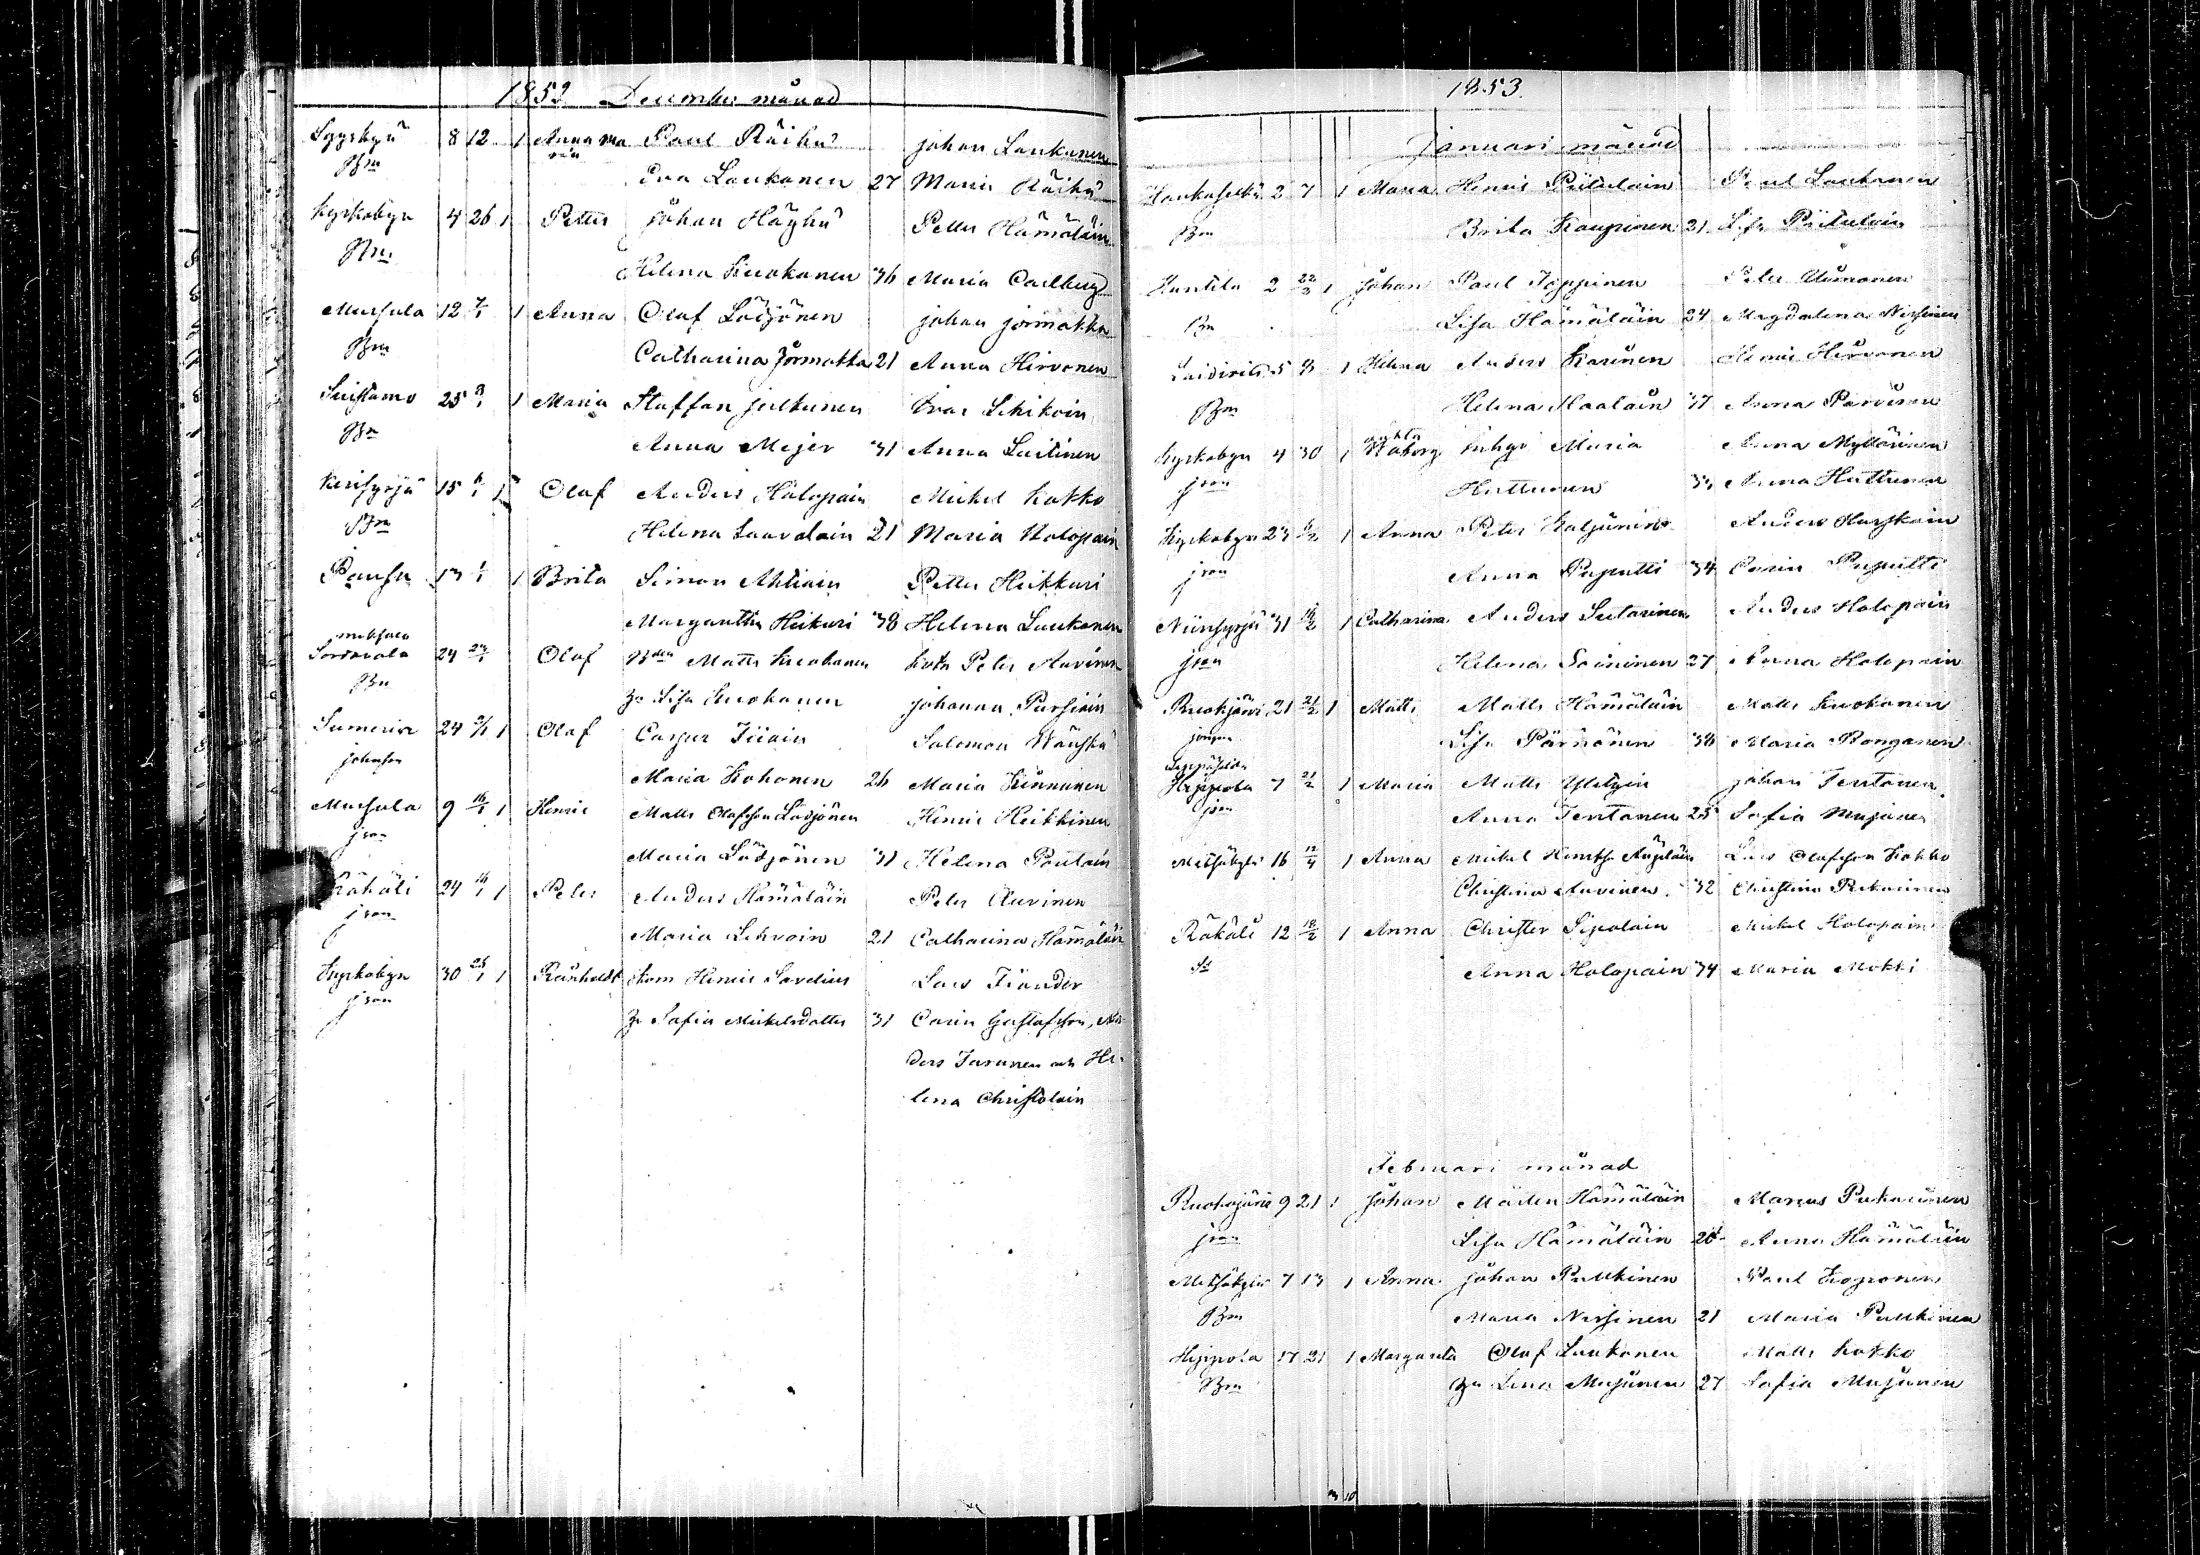 1852 December månad
Syskyä 8 12 1 Anna Ma Paul Räihä Johan Laukanen
ria
Bm Eva Laukanen 27 Maria Räihä
Kyrkobyn 4 26 1 Petter Johan Häyhä Petter Hämäläin
Bm
Helena Kuokanen 36 Maria Carlberg
Mursula 12 7/1 1 Anna Olaf Lötjönen Johan Jormakka
Bm Catharina Jormakka 21 Anna Hirvonen
Suistamo 25 8/1 1 Maria Staffan Julkunen Ivar Lehikoin
Bm
Anna Mejer 31 Anna Laitinen
Kerisyrjä 15 6/1 1 Olaf Anders Holopain Mickel Kokko
Bm Helena Laavalain 21 Maria Holopain
Pausu 13 1/1 1 Brita Simon Ahtiain Petter Heikkuri
Margaretha Heikuri 38 Helena Laukanen
Sordavala 24 Olaf Matts Kuokanen Peter Auvinen
Bm Lisa Kuokanen Johanna Pursiain
Sumeria 24 1 Olaf Casper Tiiain Salomon Wänskä
Johansson Maria Kohonen 26 Maria Kinnunen
Mursula 9 16/1 1 Henric Matts Olafsson Lötjönen Henric Heikkinen
json
Maria Lötjönen 31 Helena Poutain
Räkäli 24 16/1 1 Peter Anders Hämäläin Peter Auvinen
json Maria Lehvoin 21 Catharina Hämäläin
Kyrkobyn 30 25/1 1 Reinholdt Henric Savelius Lars Tiander
json Sofia Mickelsdotter 31 Carin Gustafsson, An
ders Turunen och He
lena Christolain
1853
Januari månad
Haukaselkä 2 7 1 Maria Henric Piitulain Paul Laukanen
Bm Brita Kauppinen 21 Lisa Piitulain
Huntila 2 22/3 1 Johan Paul Toppinen Peter Uimonen
Bm Lisa Hämäläin 24 Magdalena Nissinen
1 Helena Anders Karinen Henric Hirvonen
Bm Helena 37 Anna Parvinen
Kyrkobyn 4 30 1 oäkta Maria Anna Myllärinen
json Huttunen Anna Huttunen
Kyrkobyn 23 1 Anna Peter Anders Harskain
json Anna Puputti 34 Carin Puputti
Niinisyrjä 31 1 Catharina Anders Sutarinen Anders Holopain
json Helena Soininen 27 Anna Holopain
Ruokjärvi 21 21/2 1 Matts Matts Hämäläin Matts Kuokanen
Lisa Pärnänen 38 Maria Ronganen
Leppäselän
Hippola 7 21/2 1 Maria Matts Johan Tentonen
json Anna Tentonen 25 Sofia Musönen
Metsäkylä 16 12/4 1 Anna Mickel Lars Olafsson Kokko
Christina Auvinen 32 Christina Pukarinen
Räkäli 12 12/2 1 Anna Christer Sipolain Mickel Holopain
Anna Holopain 34 Maria Mokki
Februari månad
Ruokojärvi 9 21 1 Johan Mårten Hämäläin Marcus Pukarinen
json Lisa Hämäläin Anna Hämäläin
Metsäkylä 7 13 1 Anna Johan Pulkkinen Paul Kopponen
Bm Maria Nissinen 21 Maria Pulkkinen
Hippola 17 21 1 Margareta Olaf Laukanen Matts Kokko
Bm Lena Musönen 27 Sofia Musönen